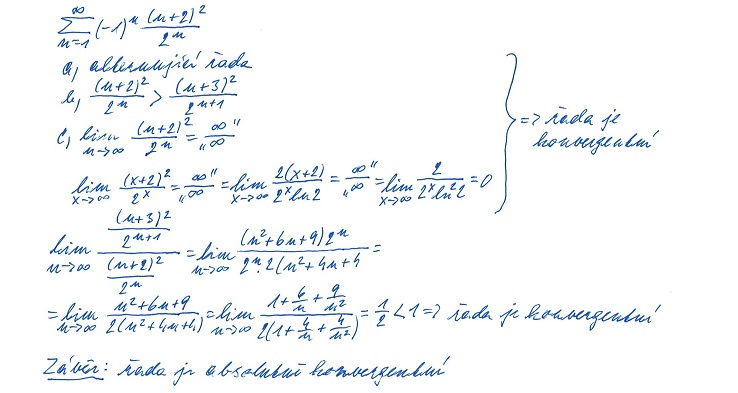 ∑_{n=1}^{∞} (-1)^n (n+2)²/2^n
a, alternující řada
b, (n+2)²/2^n > (n+3)²/2^{n+1}
c, lim_{n→∞} (n+2)²/2^n = „∞/∞"
lim_{x→∞} (x+2)²/2^x = „∞/∞" = lim_{x→∞} 2(x+2)/(2^x ln2) = „∞/∞" = lim_{x→∞} 2/(2^x ln²2) = 0
=> řada je
konvergentní
lim_{n→∞} ((n+3)²/2^{n+1})/((n+2)²/2^n) = lim_{n→∞} (n²+6n+9)2^n/2^n·2(n²+4n+4 =
= lim_{n→∞} (n²+6n+9)/(2(n²+4n+4)) = lim_{n→∞} (1+6/n+9/n²)/(2(1+4/n+4/n²)) = 1/2 < 1 => řada je konvergentní
Závěr: řada je absolutně konvergentní